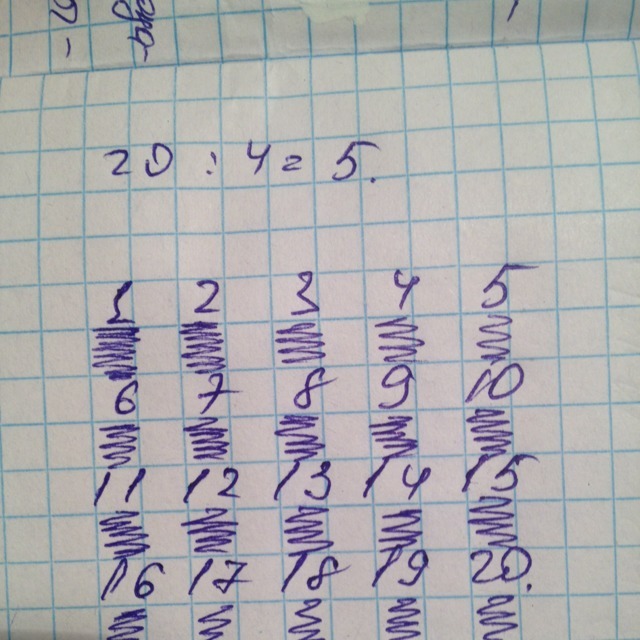 20 : 4 = 5.
1 2 3 4 5
6 7 8 9 10
11 12 13 14 15
16 17 18 19 20.